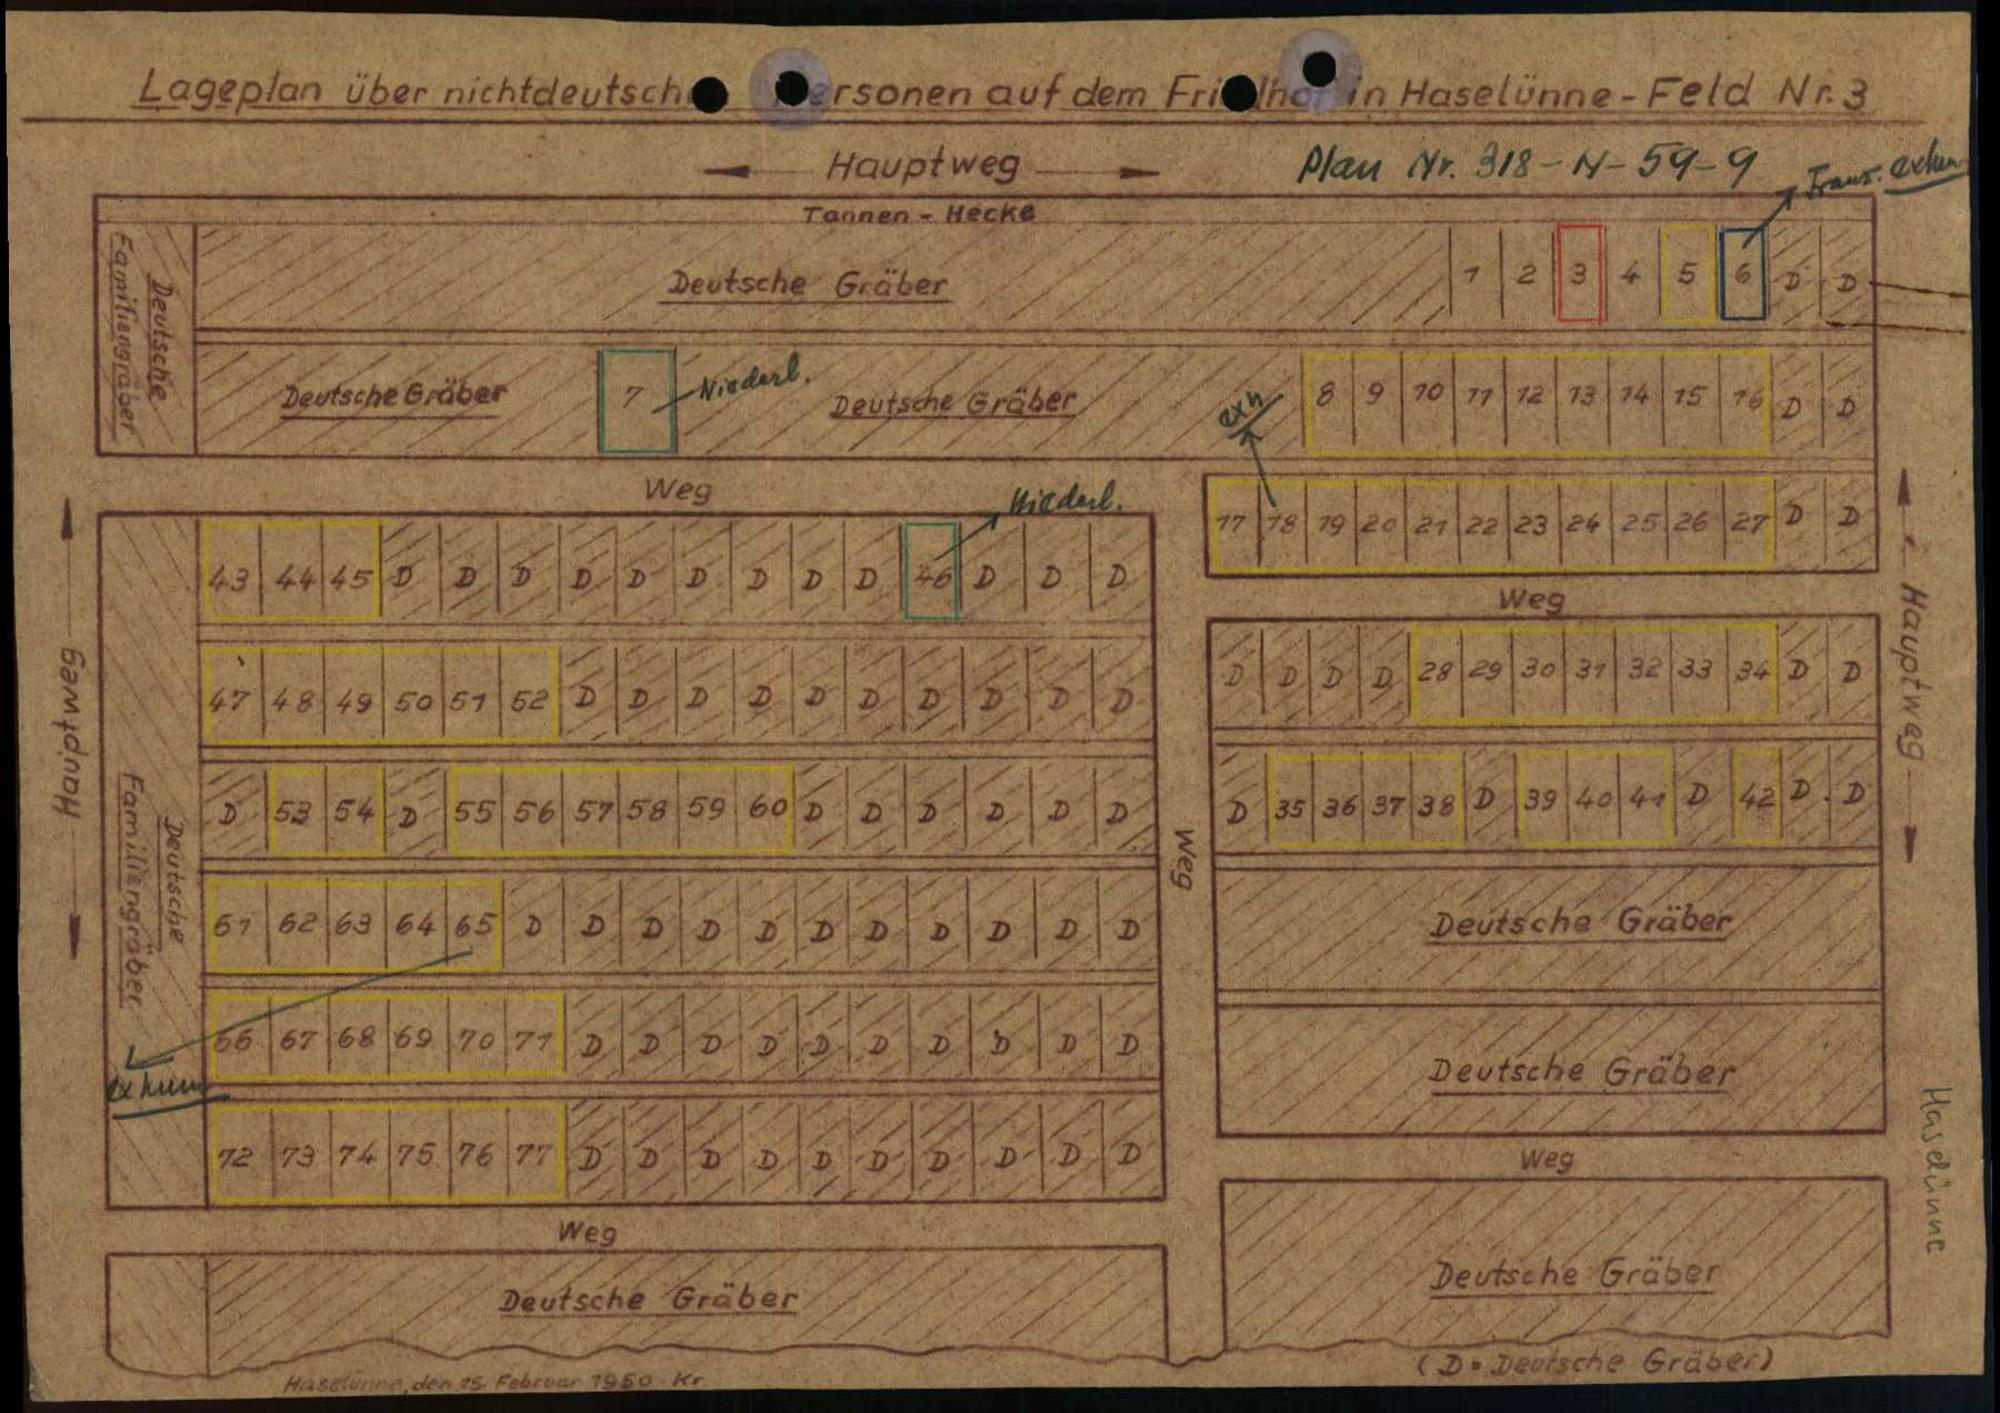 Lageplan über nichtdeutsche Personen auf dem Friedhof in Haselünne - Feld Nr. 3
Hauptweg
Plan Nr. 318-N-59-9
Franz. exhum
Tannen - Hecke
Deutsche
Familiengräber
Deutsche Gräber
1 2 3 4 5 6 D D
Deutsche Gräber
7
Niederl.
Deutsche Gräber
exh.
8 9 10 11 12 13 14 15 16 D D
Weg
Niederl.
17 18 19 20 21 22 23 24 25 26 27 D D
Hauptweg
Hauptweg
Deutsche
Familiengräber
43 44 45 D D D D D D D D D 46 D D D
47 48 49 50 51 52 D D D D D D D D D D
D 53 54 D 55 56 57 58 59 60 D D D D D D
61 62 63 64 65 D D D D D D D D D D D
66 67 68 69 70 71 D D D D D D D D D D
exhum
72 73 74 75 76 77 D D D D D D D D D D
Weg
Weg
D D D D 28 29 30 31 32 33 34 D D
D 35 36 37 38 D 39 40 41 D 42 D D
Deutsche Gräber
Deutsche Gräber
Weg
Weg
Haselünne
Deutsche Gräber
Deutsche Gräber
(D = Deutsche Gräber)
Haselünne, den 15. Februar 1950 Kr.